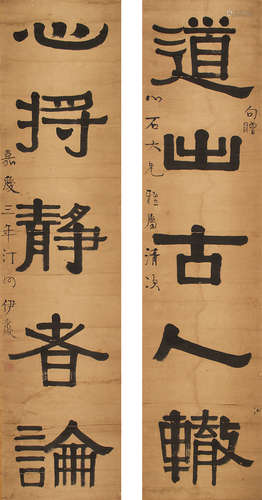 道出古人轍
心石大兄雅屬清沴
心将靜者論
嘉慶三年汀州伊秉綬